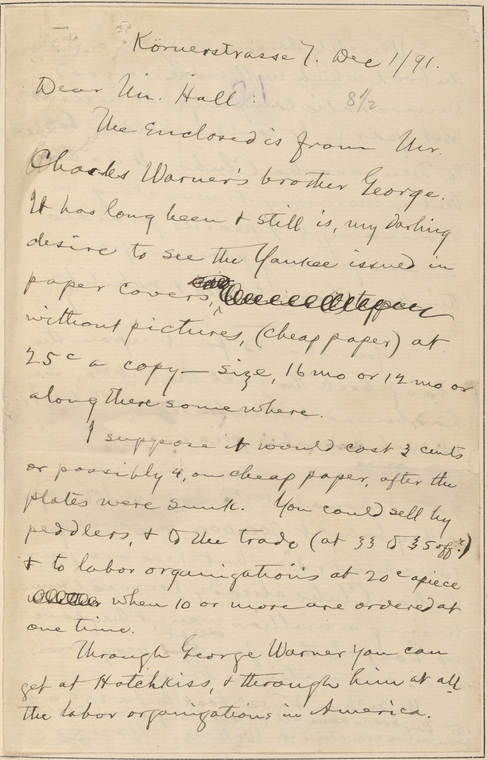 Körnerstrasse 7. Dec 1/91.
Dear Mr. Hall:
8 1/2
The enclosed is from Mr.
Charles Warner's brother George.
It has long been & still is, my darling
desire to see the Yankee issued in
paper covers,
without pictures, (cheap paper) at
25c a copy — size, 16mo or 12mo or
along there somewhere.
I suppose it would cost 3 cents
or possibly 4, on cheap paper, after the
plates were sunk. You could sell by
peddlers, & to the trade (at 33 to 35 off?)
& to labor organizations at 20c apiece
when 10 or more are ordered at
one time.
Through George Warner you can
get at Hotchkiss, & through him at all
the labor organizations in America.